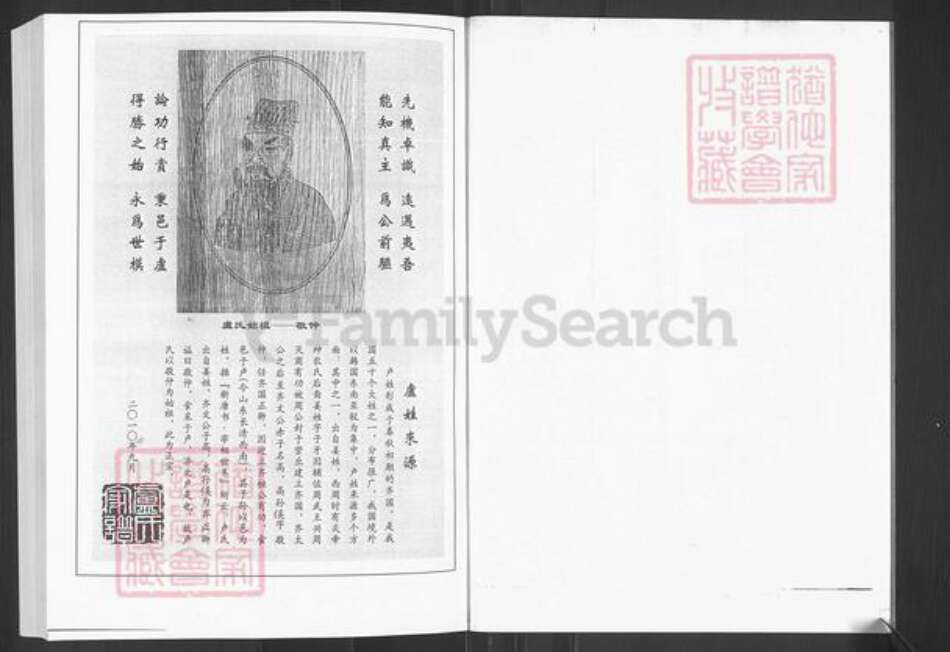 先機卓識 遠邁夷吾
能知真主 爲公前驅
論功行賞 稟邑于盧
得勝之始 永爲世模
盧氏始祖——敬仲
盧姓来源
卢姓形成于春秋初期的齐国，是我
国五十个大姓之一，分布很广，我国境外
以韩国东南亚较为集中，卢姓来源多个方
面，其中之一，出自姜姓，西周时有炎帝
神农氏后裔姜姓字子牙因辅佐周武王兴周
灭商有功被周公封于营丘建立齐国，齐太
公之后至齐文公赤子名高，高孙傒字敬
仲，任齐国正卿，因迎立齐桓公有功，食
邑于卢(今山东长清西南)其子孙以邑为
姓。据『新唐书·宰相世系』所云，卢氏
出自姜姓，齐文公子高，高孙傒为齐正卿
谥曰敬仲，食采于卢，济北卢是也，故卢
氏以敬仲为始祖，此为正宗。
二〇一〇年九月
盧氏家譜
猶他家
譜學會
收藏
猶他家
譜學會
收藏
FamilySearch